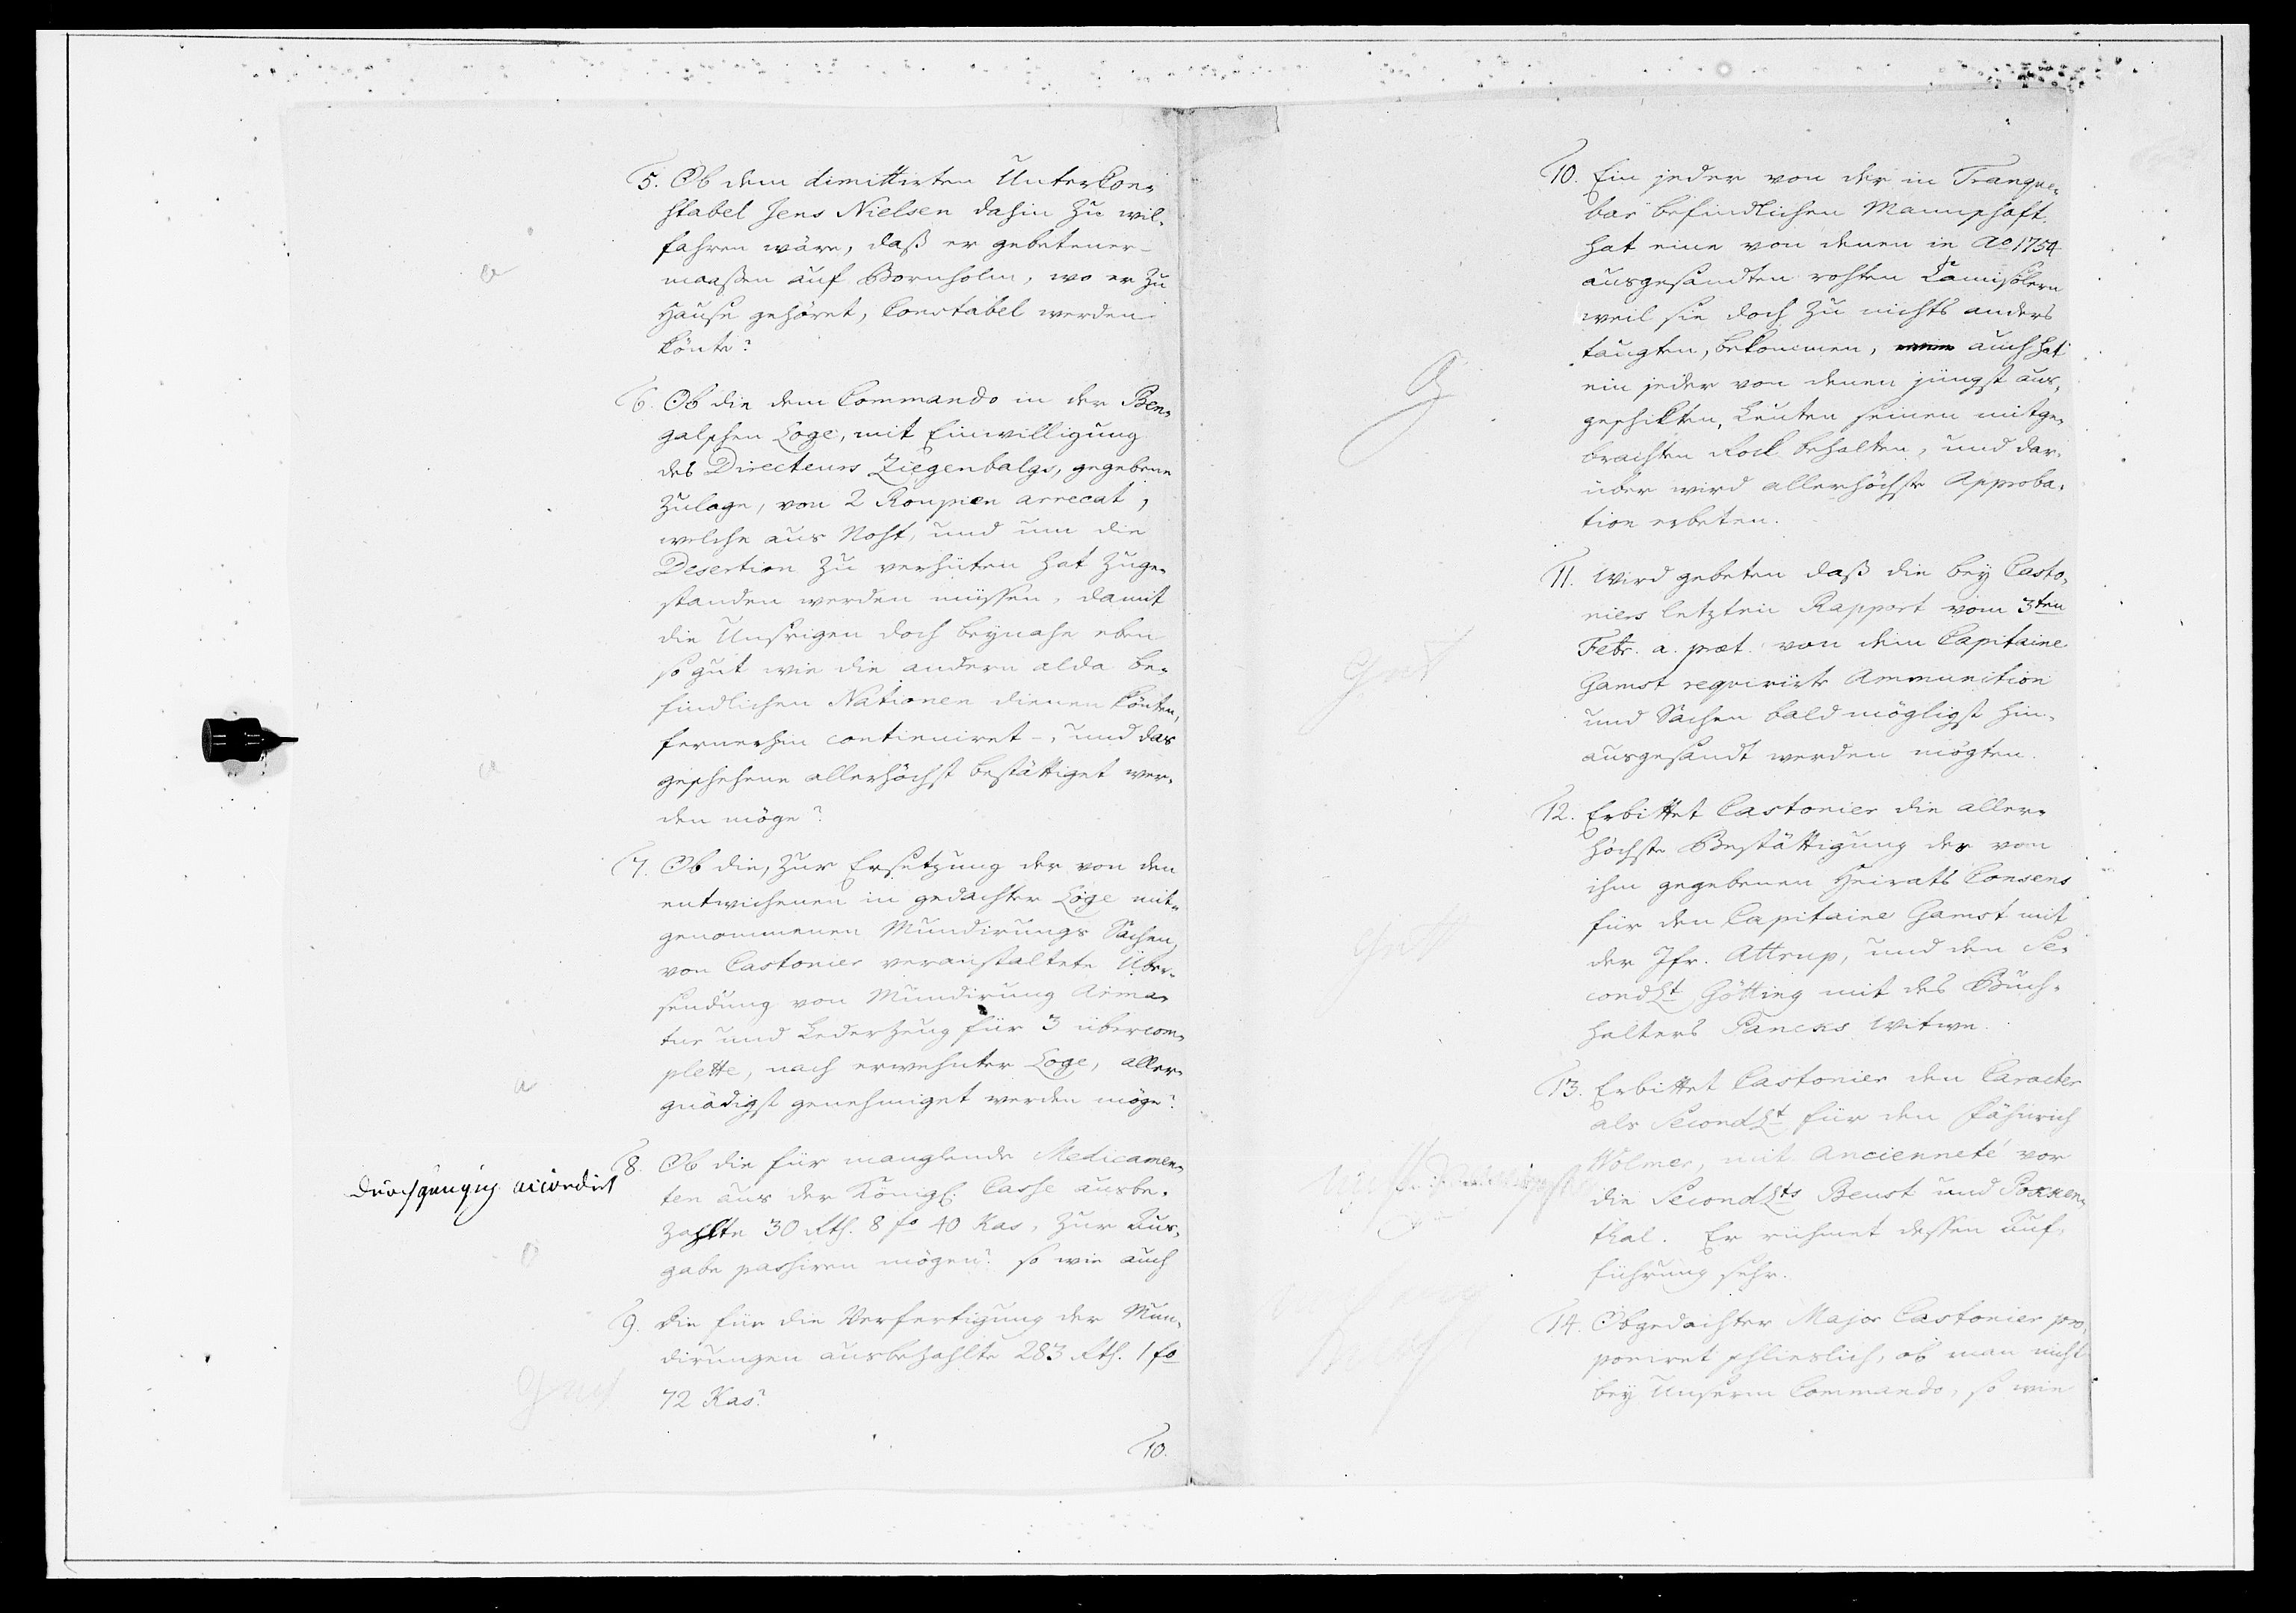 5. Ob dem dimittirten Unterkon-
stabel Jens Nielsen dahin zu wil-
fahren wäre, daß er gebetener-
maaßen auf Bornholm, wo er zu
Hause gehöret, Constabel werden
könte?
6. Ob die dem Commando in der Ben-
galschen Loge, mit Einwilligung
des Directeurs Ziegenbalgs, gegebene
Zulage, von 2 Roupien arrecat,
welche aus Noht, und um die
Desertion zu verhüten hat zuge-
standen werden müssen, damit
die Unsrigen doch beynahe eben
so gut wie die andern alda be-
findlichen Nationen dienen könten,
fernerhin contieniret-, und das
geschehene allerhöchst bestättiget wer-
den möge?
7. Ob die, zur Ersetzung der von den
entwichenen in gedachter Loge mit-
genommenen Mundirungs Sachen,
von Castonier veranstaltete Über-
sendung von Mundirung Arma-
tur und Lederzeug für 3 übercom-
plette, nach erwehnter Loge, aller-
gnädigst genehmiget werden möge?
durchgängig accordirt
8. Ob die für manglende Medicamen-
ten aus der Königl. Casse ausbe-
zahlte 30 Rth. 8 fo 40 Kas, zur Aus-
gabe passiren mögen? so wie auch
9. die für die Verfertigung der Mun-
dirungen ausbezahlte 283 Rth. 1 fo
gut
72 Kas?
10.
10. Ein jeder von der in Tranque-
bar befindlichen Mannschaft
hat eine von denen in Ao 1754
ausgesandten rohten Camisölern
weil sie doch zu nichts anders
taugten, bekommen, auch hat
ein jeder von denen jüngst aus-
geschikten, Leuten seinen mitge-
brachten Rock behalten, und dar-
über wird allerhöchste Approba-
tion erbeten.
11. Wird gebeten daß die bey Casto-
niers letzten Rapport vom 3ten
Febr. a. præt. von dem Capitaine
gut
Gamst requirirte Ammunition
und Sachen bald mögligst hin-
ausgesandt werden mögten.
12. Erbittet Castonier die aller-
höchste Bestättigung der von
ihm gegebenen Heirats Consens
gut
für den Capitaine Gamst mit
der Jfr. Attrup, und den Se-
condLt Götting mit des Buch-
halters Pancks Witwe.
13. Erbittet Castonier den Caracter
als SecondLt für den Fähnrich
Wolmer, mit Ancienneté vor
die SecondLts Beust und
thal. Er rühmet dessen Auf-
führung sehr.
14. Obgedachter Major Castonier pro-
poniret schlieslich, ob man nicht
bey Unserm Commando, so wie